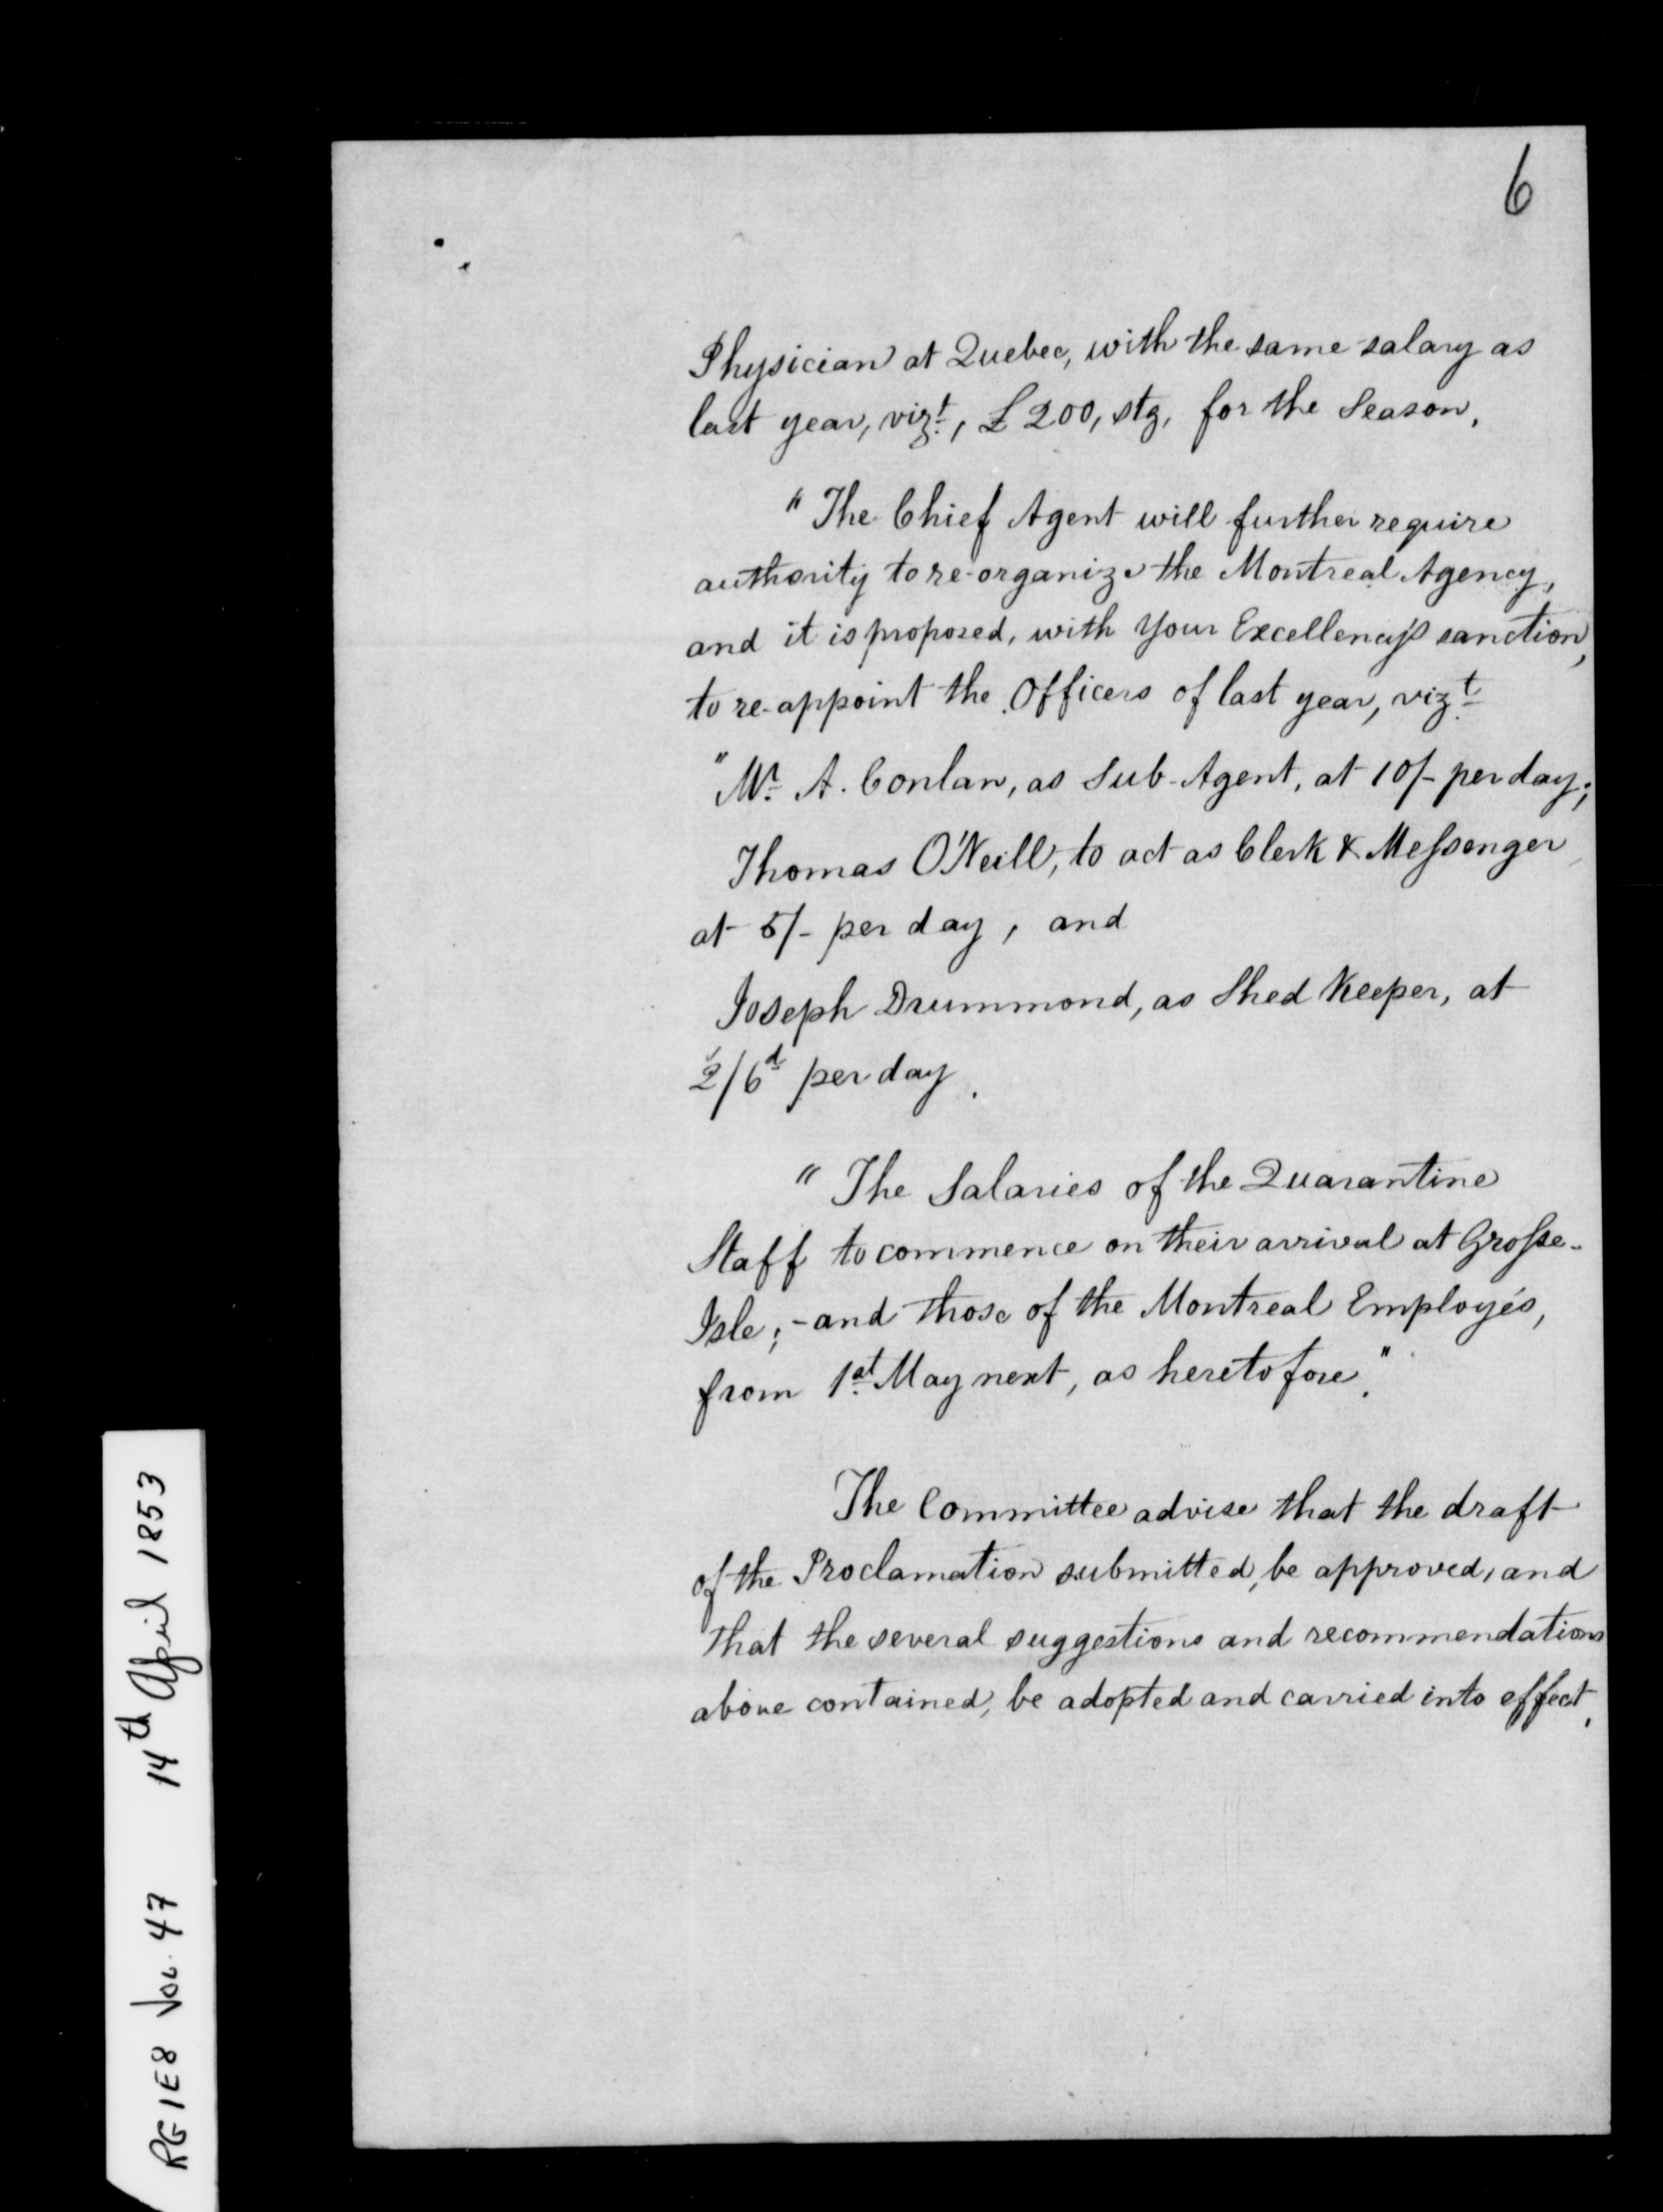 6
Physician at Quebec, with the same salary as
last year, vizt, £200, stg, for the Season.
"The Chief Agent will further require
authority to re-organize the Montreal Agency,
and it is proposed, with Your Excellency's sanction,
to re-appoint the Officers of last year, vizt
"Mr. A. Conlan, as Sub-Agent, at 10/- per day;
Thomas O'Neill, to act as Clerk & Meſsenger
at 5/- per day, and
Joseph Drummond, as Shed Keeper, at
2/6d per day.
"The Salaries of the Quarantine
Staff to commence on their arrival at Groſse-
Isle; - and those of the Montreal Employés,
from 1st May next, as heretofore."
The Committee advise that the draft
of the Proclamation submitted, be approved, and
that the several suggestions and recommendations
above contained, be adopted and carried into effect.
RG 1 E8 Vol. 47 14th April 1853